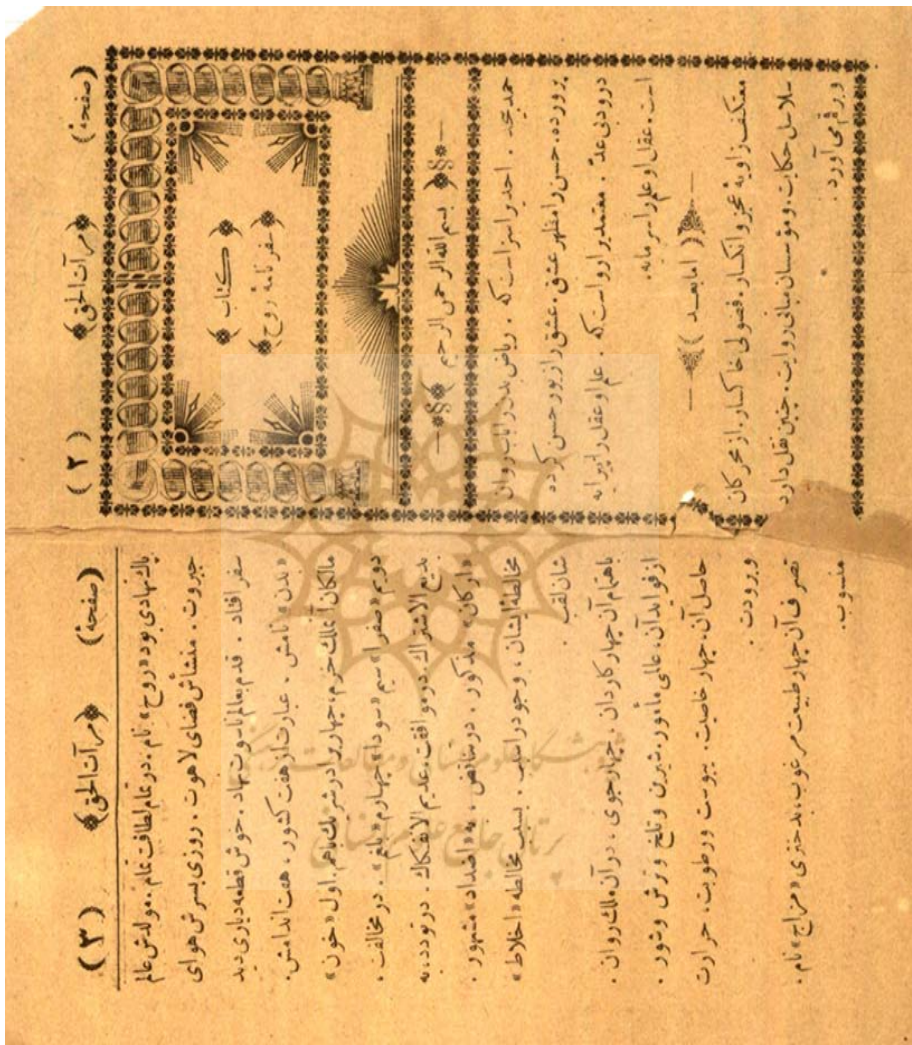 (صفحهٔ) ﴿مرآت الحق﴾ (۲)
﴿ کتاب ﴾
﴿سفرنامهٔ روح﴾
﴿ بسم الله الرحمن الرحیم ﴾
حمد بیحد . احدیرا سزاست که . ریاض بدن را بآب روان
پرورده. حسن را مظهر عشق. عشق را زیور حسن کرده
درود بی عدّ. معتمدیرا رواست که . علم او عقل را پیرایه
است. عقل او علم را سرمایه.
﴿( امابعد )﴾
معتکف زاویهٔ عجز و انکسار. فضولی خاکسار. از محرکان
سلاسل حکایت. و مؤسسان مبانی روایت. چنین نقل دارد
و رقم می آورد :
(صفحهٔ) ﴿مرآت الحق﴾ (۳)
پاک نهادی بود «روح» نام . در تمام لطافت تمام . مولدش عالم
جبروت . منشاش فضای لاهوت . روزی بسرش هوای
سفر افتاد . قدم بعالم ناسوت نهاد . خوش قطعه دیاری دید
«بدن» نامش . عبارت از هفت کشور ، هفت اندامش .
مالکان آن ملک خرم، چهار برادر شریک باهم. اول «خون»
دویم «صفرا» سیم «سودا» چهارم «بلغم» . در مخالفت ،
بدیع الاشتراک. در موافقت. عدیم الانفکاک . در تودد. به
«ارکان» مذکور . در تناقض . به «اضداد» مشهور .
مخالطه ایشان ، وجود را سبب . بسبب مخالطه «اخلاط»
شان لقب .
باهتمام آن چهار کاردان . چهار جوی ، در آن ملک روان .
از فواید آن. عالمی مأمور. شیرین و تلخ و ترش و شور .
حاصل آن. چهار خاصیت. یبوست و رطوبت ، حرارت
و برودت .
تصرف آن چهار طبیعت مرغوب. بدختری «مزاج» نام .
منسوب.
پژوهشگاه علوم انسانی و مطالعات فرهنگی
پرتال جامع علوم انسانی